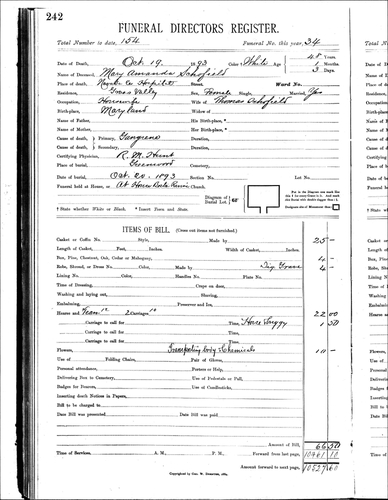 242
FUNERAL DIRECTORS REGISTER.
Total Number to date, 154 Funeral No. this year, 34
Date of Death, Oct 19, 1893 Color † White Age 48 Years
1 Months
3 Days.
Name of Deceased, Mary Amanda Schofield
Place of death, Nevada Co Hospital Street, Ward No.
Residence, Grass Valley Sex, Female Single, Married, Yes
Occupation, Housewife Wife of Thomas Schofield
Birthplace, Maryland Widow of
Name of Father, His Birthplace,*
Name of Mother, Her Birthplace,*
Cause of death, Primary, Gangrene
Cause of death, Secondary,
Certifying Physician, R. M. Hunt
Place of burial, Greenwood Cemetery,
Date of burial, Oct. 20, 1893 Section No. Lot No.
Funeral held at House, or At House Church.
† State whether White or Black. * Insert Town and State.
Diagram of Burial Lot.
ITEMS OF BILL. (Cross out items not furnished.)
Casket or Coffin No. Style, Made by 25 –
Length of Casket, Feet, Inches. Width of Casket, Inches.
Box, Pine, Chestnut, Oak, Cedar or Mahogany, 4 –
Robe, Shroud, or Dress No. Color, Made by 4 –
Lining No. Color, Handles No. Plate No.
Time of Dressing, Crape on door,
Washing and laying out, Shaving,
Embalming, Preserver and Ice,
Hearse and Team 12 2 Carriages 10 22 00
Carriage to call for Time, Horse Buggy 1 50
Carriage to call for Time,
Carriage to call for Time,
Flowers, Transporting body & Chemicals 10 –
Use of Folding Chairs, Pair of Gloves,
Personal attendance, Porters or Help,
Delivering Box to Cemetery, Use of Pedestals or Pall,
Badges for Bearers, Use of Candlesticks,
Inserting death Notices in Papers,
Bill to be charged to
Date Bill was presented, Date Bill was paid,
Amount of Bill, 66.50
Time of Services, A. M. P. M. Forward from last page, 10461 10
Amount forward to next page, 10527 60